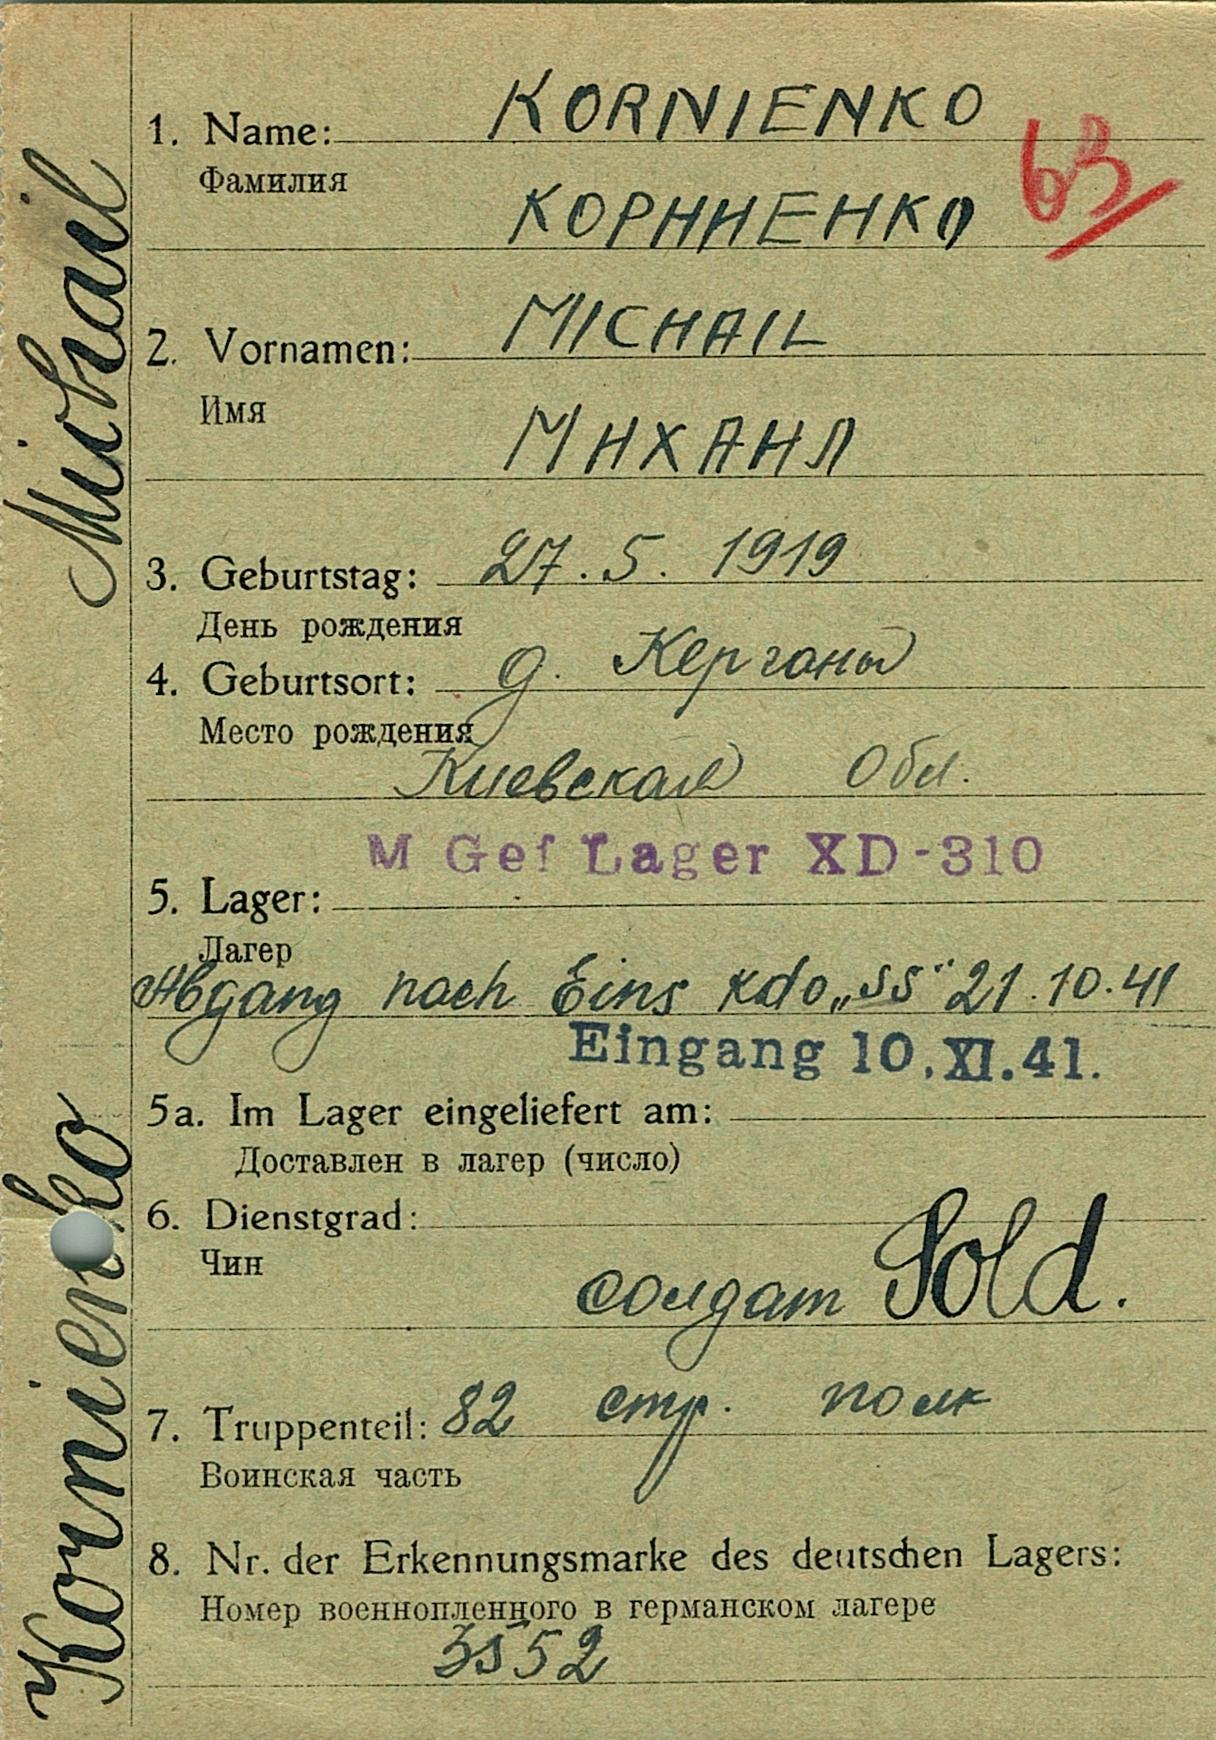 Kornienko Michail
1. Name: KORNIENKO
63
Фамилия
КОРНИЕНКО
2. Vornamen: MICHAIL
Имя
МИХАИЛ
3. Geburtstag: 27. 5. 1919
День рождения
4. Geburtsort: д. Керганы
Место рождения
Киевская Обл.
M Gef Lager XD-310
5. Lager:
Лагер
Abgang nach Eins Kdo „SS“ 21.10.41
Eingang 10.XI.41.
5a. Im Lager eingeliefert am:
Доставлен в лагер (число)
6. Dienstgrad:
Чин
солдат Sold.
7. Truppenteil: 82 стр. полк
Воинская часть
8. Nr. der Erkennungsmarke des deutschen Lagers:
Номер военнопленного в германском лагере
3552